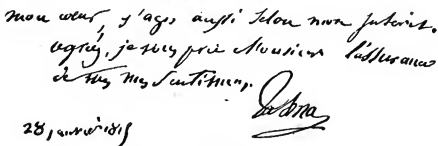 mon cœur, j'agis aussi selon mon intérêt.
agréez, je vous prie Monsieur l'assurance
de tous mes sentimens.
Talma
28 janvier 1815